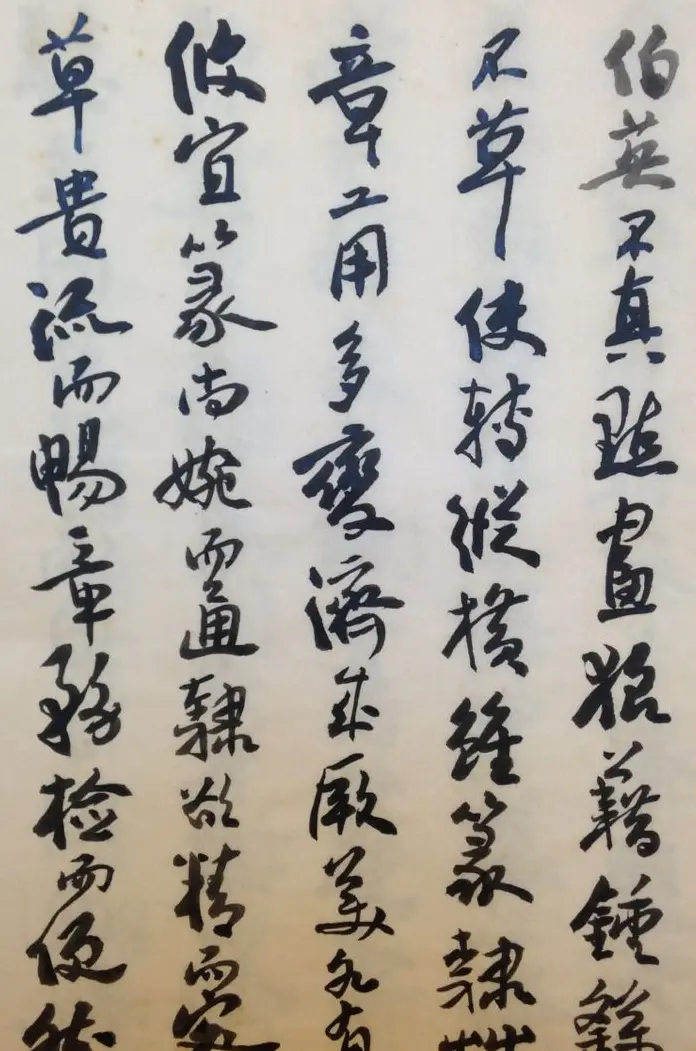 伯英不真點畫狼藉鍾繇
不草使轉縱橫雖篆隸
章工用多變濟成厥美各有
攸宜篆尚婉而通隸欲精而密
草貴流而暢章務檢而便然